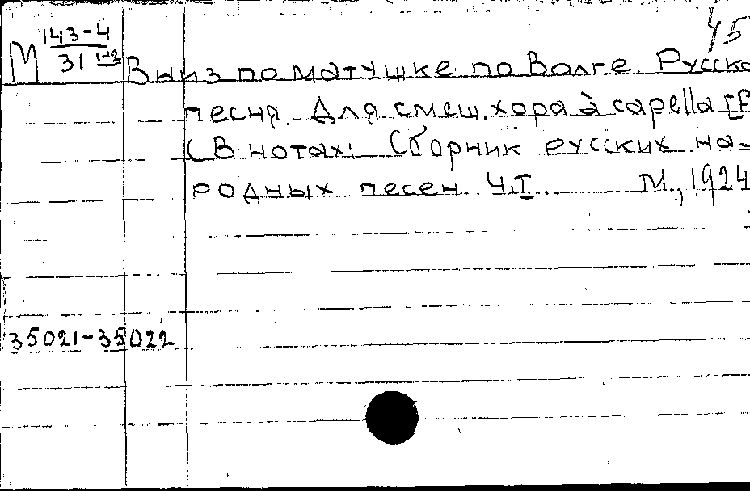 45
М 143-4
31 1-2
Вниз по матушке по Волге. Русска
песня. Для смеш. хора à capella [Р
(В нотах: Сборник русских на-
родных песен. Ч.I. М., 1924
35021-35022